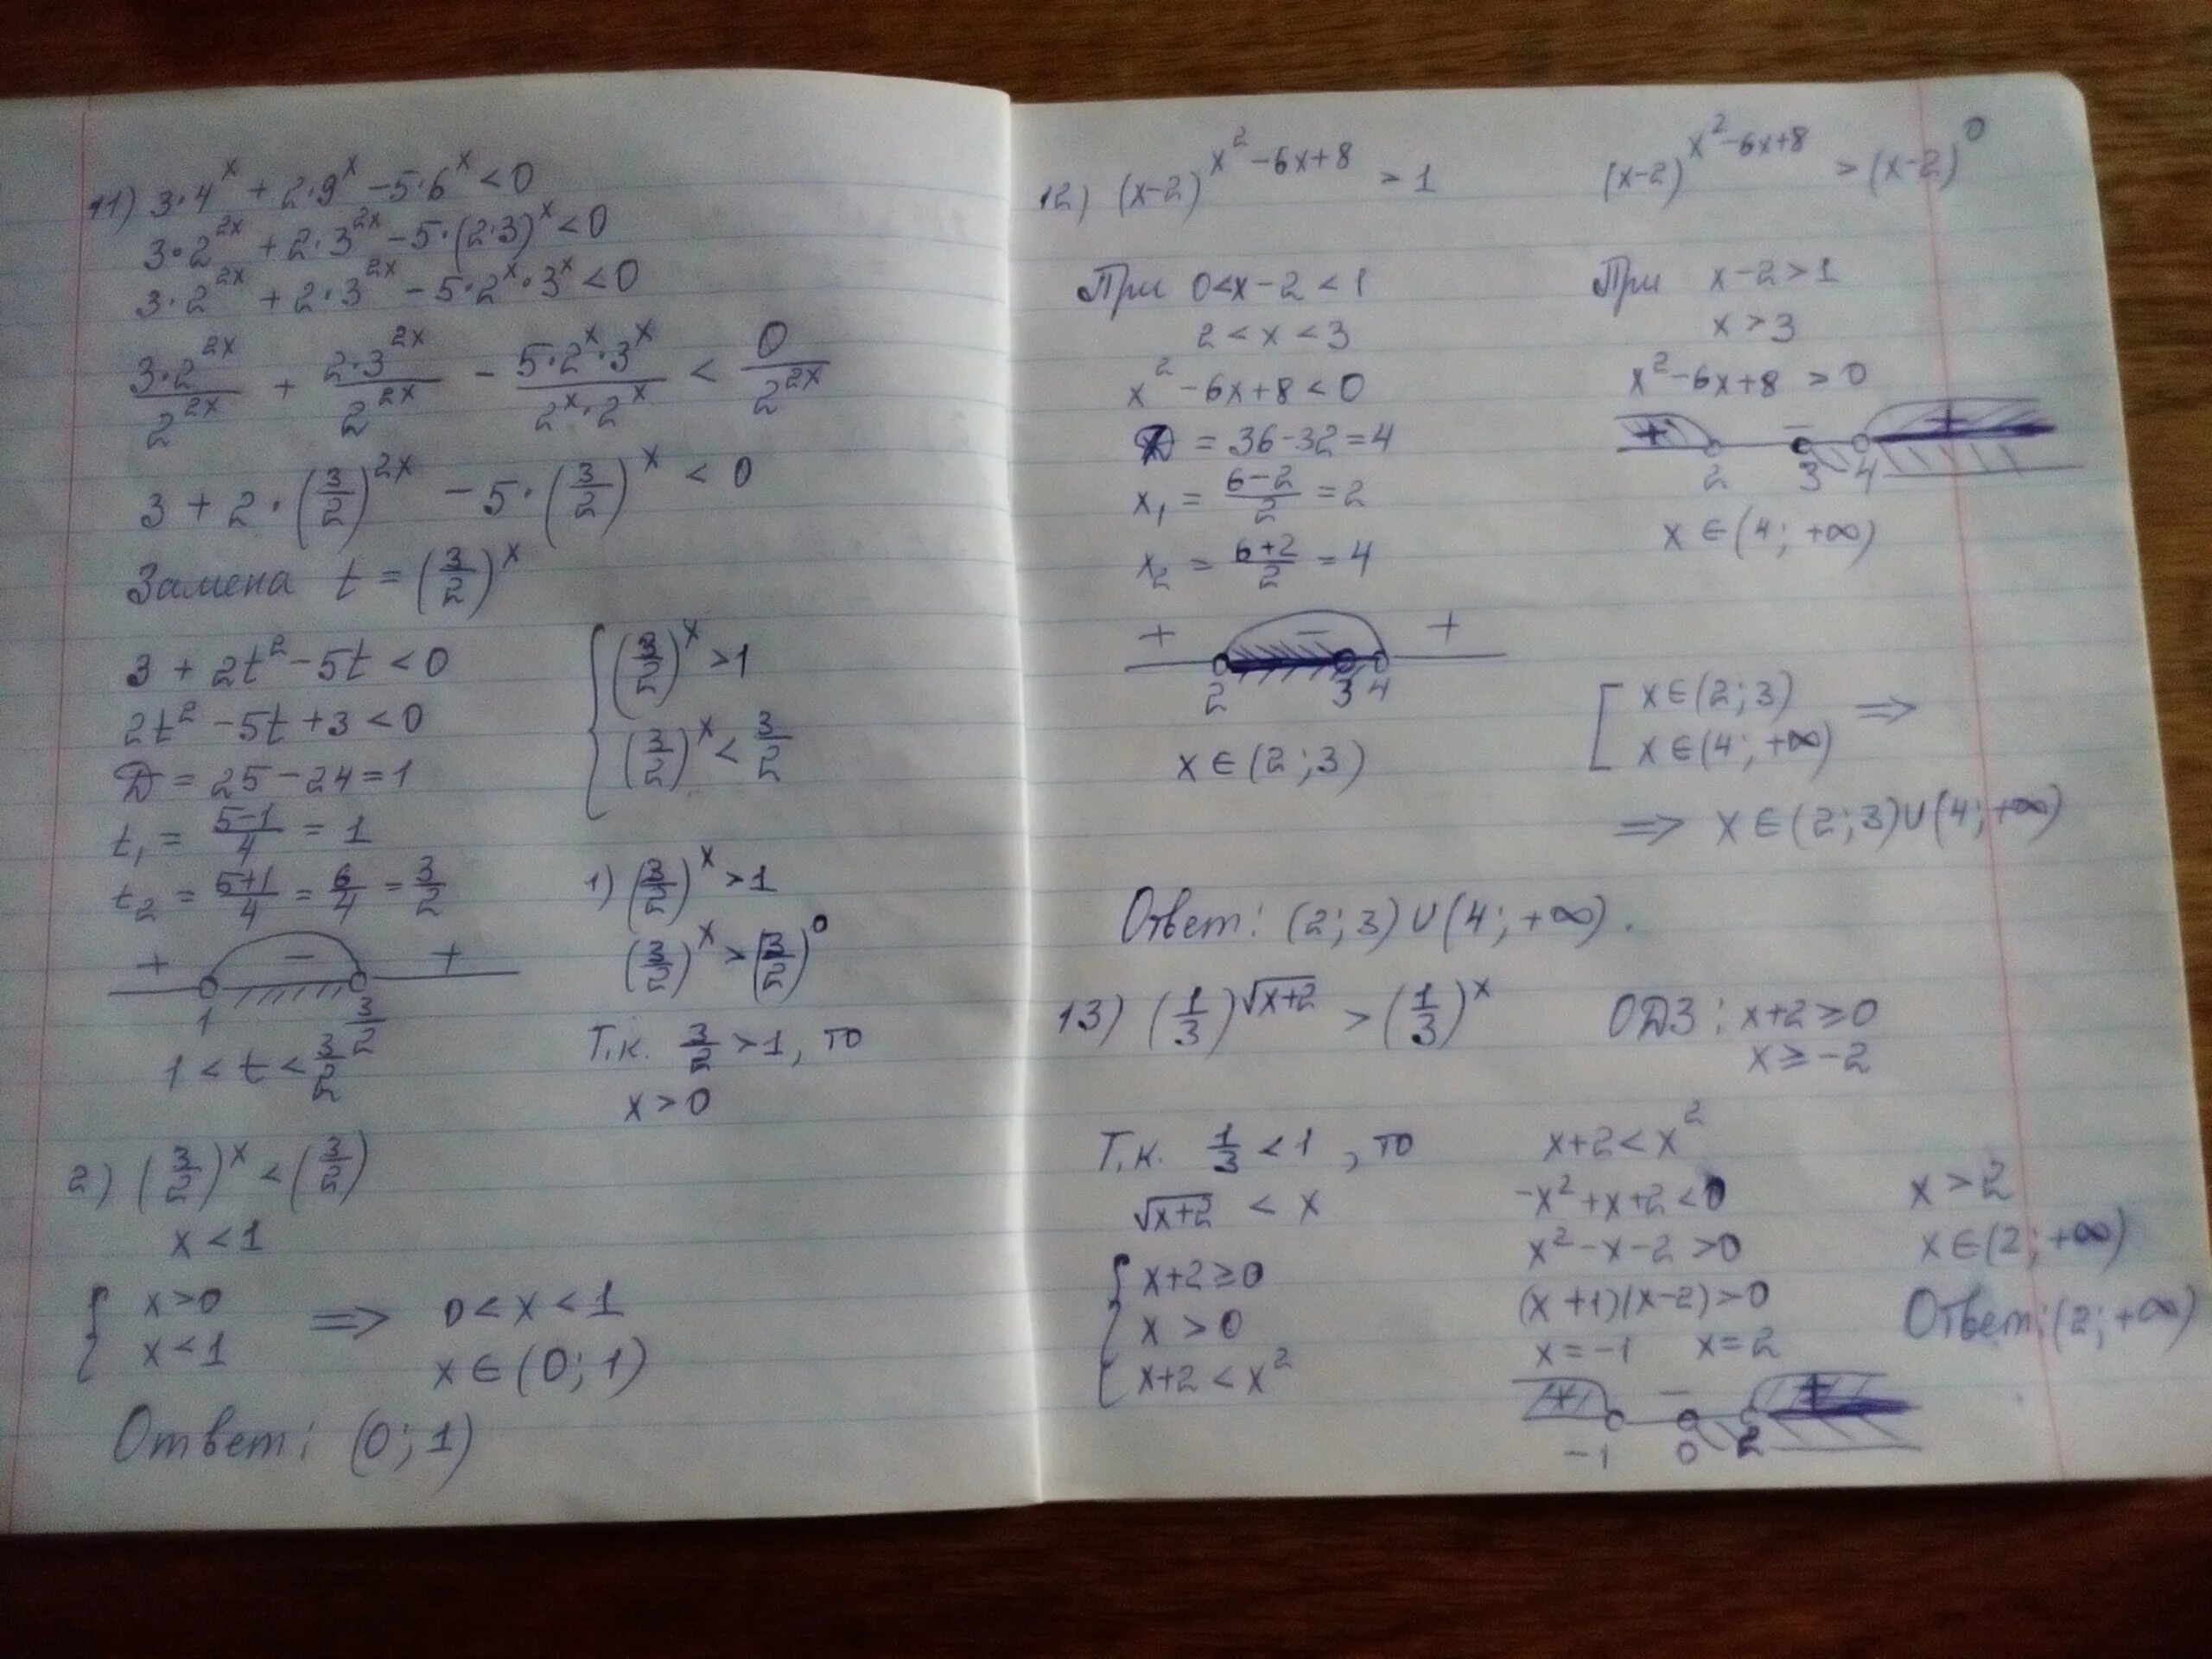 11) 3·4^x + 2·9^x – 5·6^x < 0
3·2^{2x} + 2·3^{2x} – 5·(2·3)^x < 0
3·2^{2x} + 2·3^{2x} – 5·2^x·3^x < 0
\frac{3·2^{2x}}{2^{2x}} + \frac{2·3^{2x}}{2^{2x}} – \frac{5·2^x·3^x}{2^x·2^x} < \frac{0}{2^{2x}}
3 + 2·(\frac{3}{2})^{2x} – 5·(\frac{3}{2})^x < 0
Замена t = (\frac{3}{2})^x
3 + 2t² – 5t < 0
2t² – 5t + 3 < 0
D = 25 – 24 = 1
t₁ = \frac{5–1}{4} = 1
t₂ = \frac{5+1}{4} = \frac{6}{4} = \frac{3}{2}
+ – +
1 \frac{3}{2}
1 < t < \frac{3}{2}
{ (\frac{3}{2})^x > 1
(\frac{3}{2})^x < \frac{3}{2}
1) (\frac{3}{2})^x > 1
(\frac{3}{2})^x > (\frac{3}{2})^0
Т.к. \frac{3}{2} > 1, то
x > 0
2) (\frac{3}{2})^x < (\frac{3}{2})
x < 1
{ x > 0
x < 1
⇒ 0 < x < 1
x ∈ (0; 1)
Ответ: (0; 1)
12) (x–2)^{x²–6x+8} > 1
(x–2)^{x²–6x+8} > (x–2)^0
При 0 < x – 2 < 1
2 < x < 3
x² – 6x + 8 < 0
D = 36 – 32 = 4
x₁ = \frac{6–2}{2} = 2
x₂ = \frac{6+2}{2} = 4
+ – +
2 3 4
x ∈ (2; 3)
При x – 2 > 1
x > 3
x² – 6x + 8 > 0
+ – +
2 3 4
x ∈ (4; +∞)
[ x ∈ (2; 3)
x ∈ (4; +∞) ⇒
⇒ x ∈ (2; 3) ∪ (4; +∞)
Ответ: (2; 3) ∪ (4; +∞).
13) (\frac{1}{3})^{√(x+2)} > (\frac{1}{3})^x
ОДЗ: x+2 ≥ 0
x ≥ –2
Т.к. \frac{1}{3} < 1, то
√(x+2) < x
{ x+2 ≥ 0
x > 0
x+2 < x²
x+2 < x²
–x² + x + 2 < 0
x² – x – 2 > 0
(x+1)(x–2) > 0
x = –1 x = 2
+ – +
–1 0 2
x > 2
x ∈ (2; +∞)
Ответ: (2; +∞)